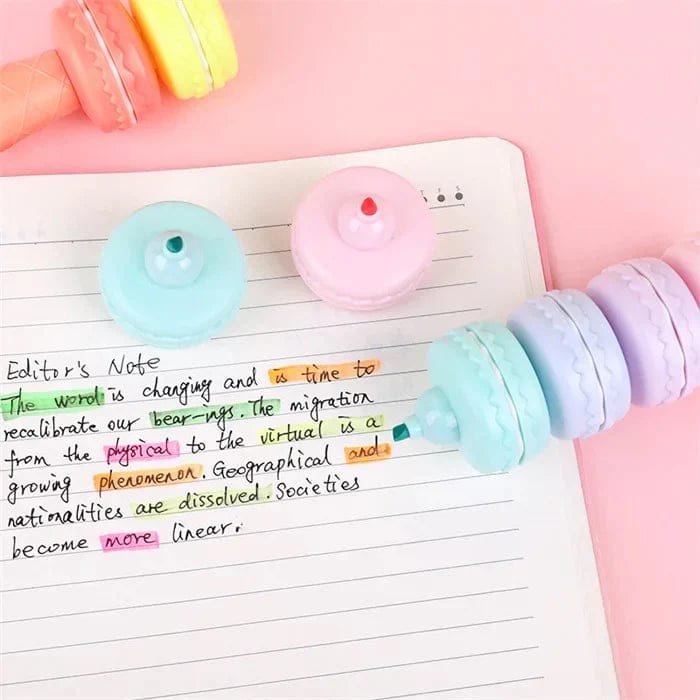 T F S
Editor's Note
The word is changing and is time to
recalibrate our bear-ings. The migration
from the physical to the virtual is a
growing phenomenon. Geographical and
nationalities are dissolved. Societies
become more linear.